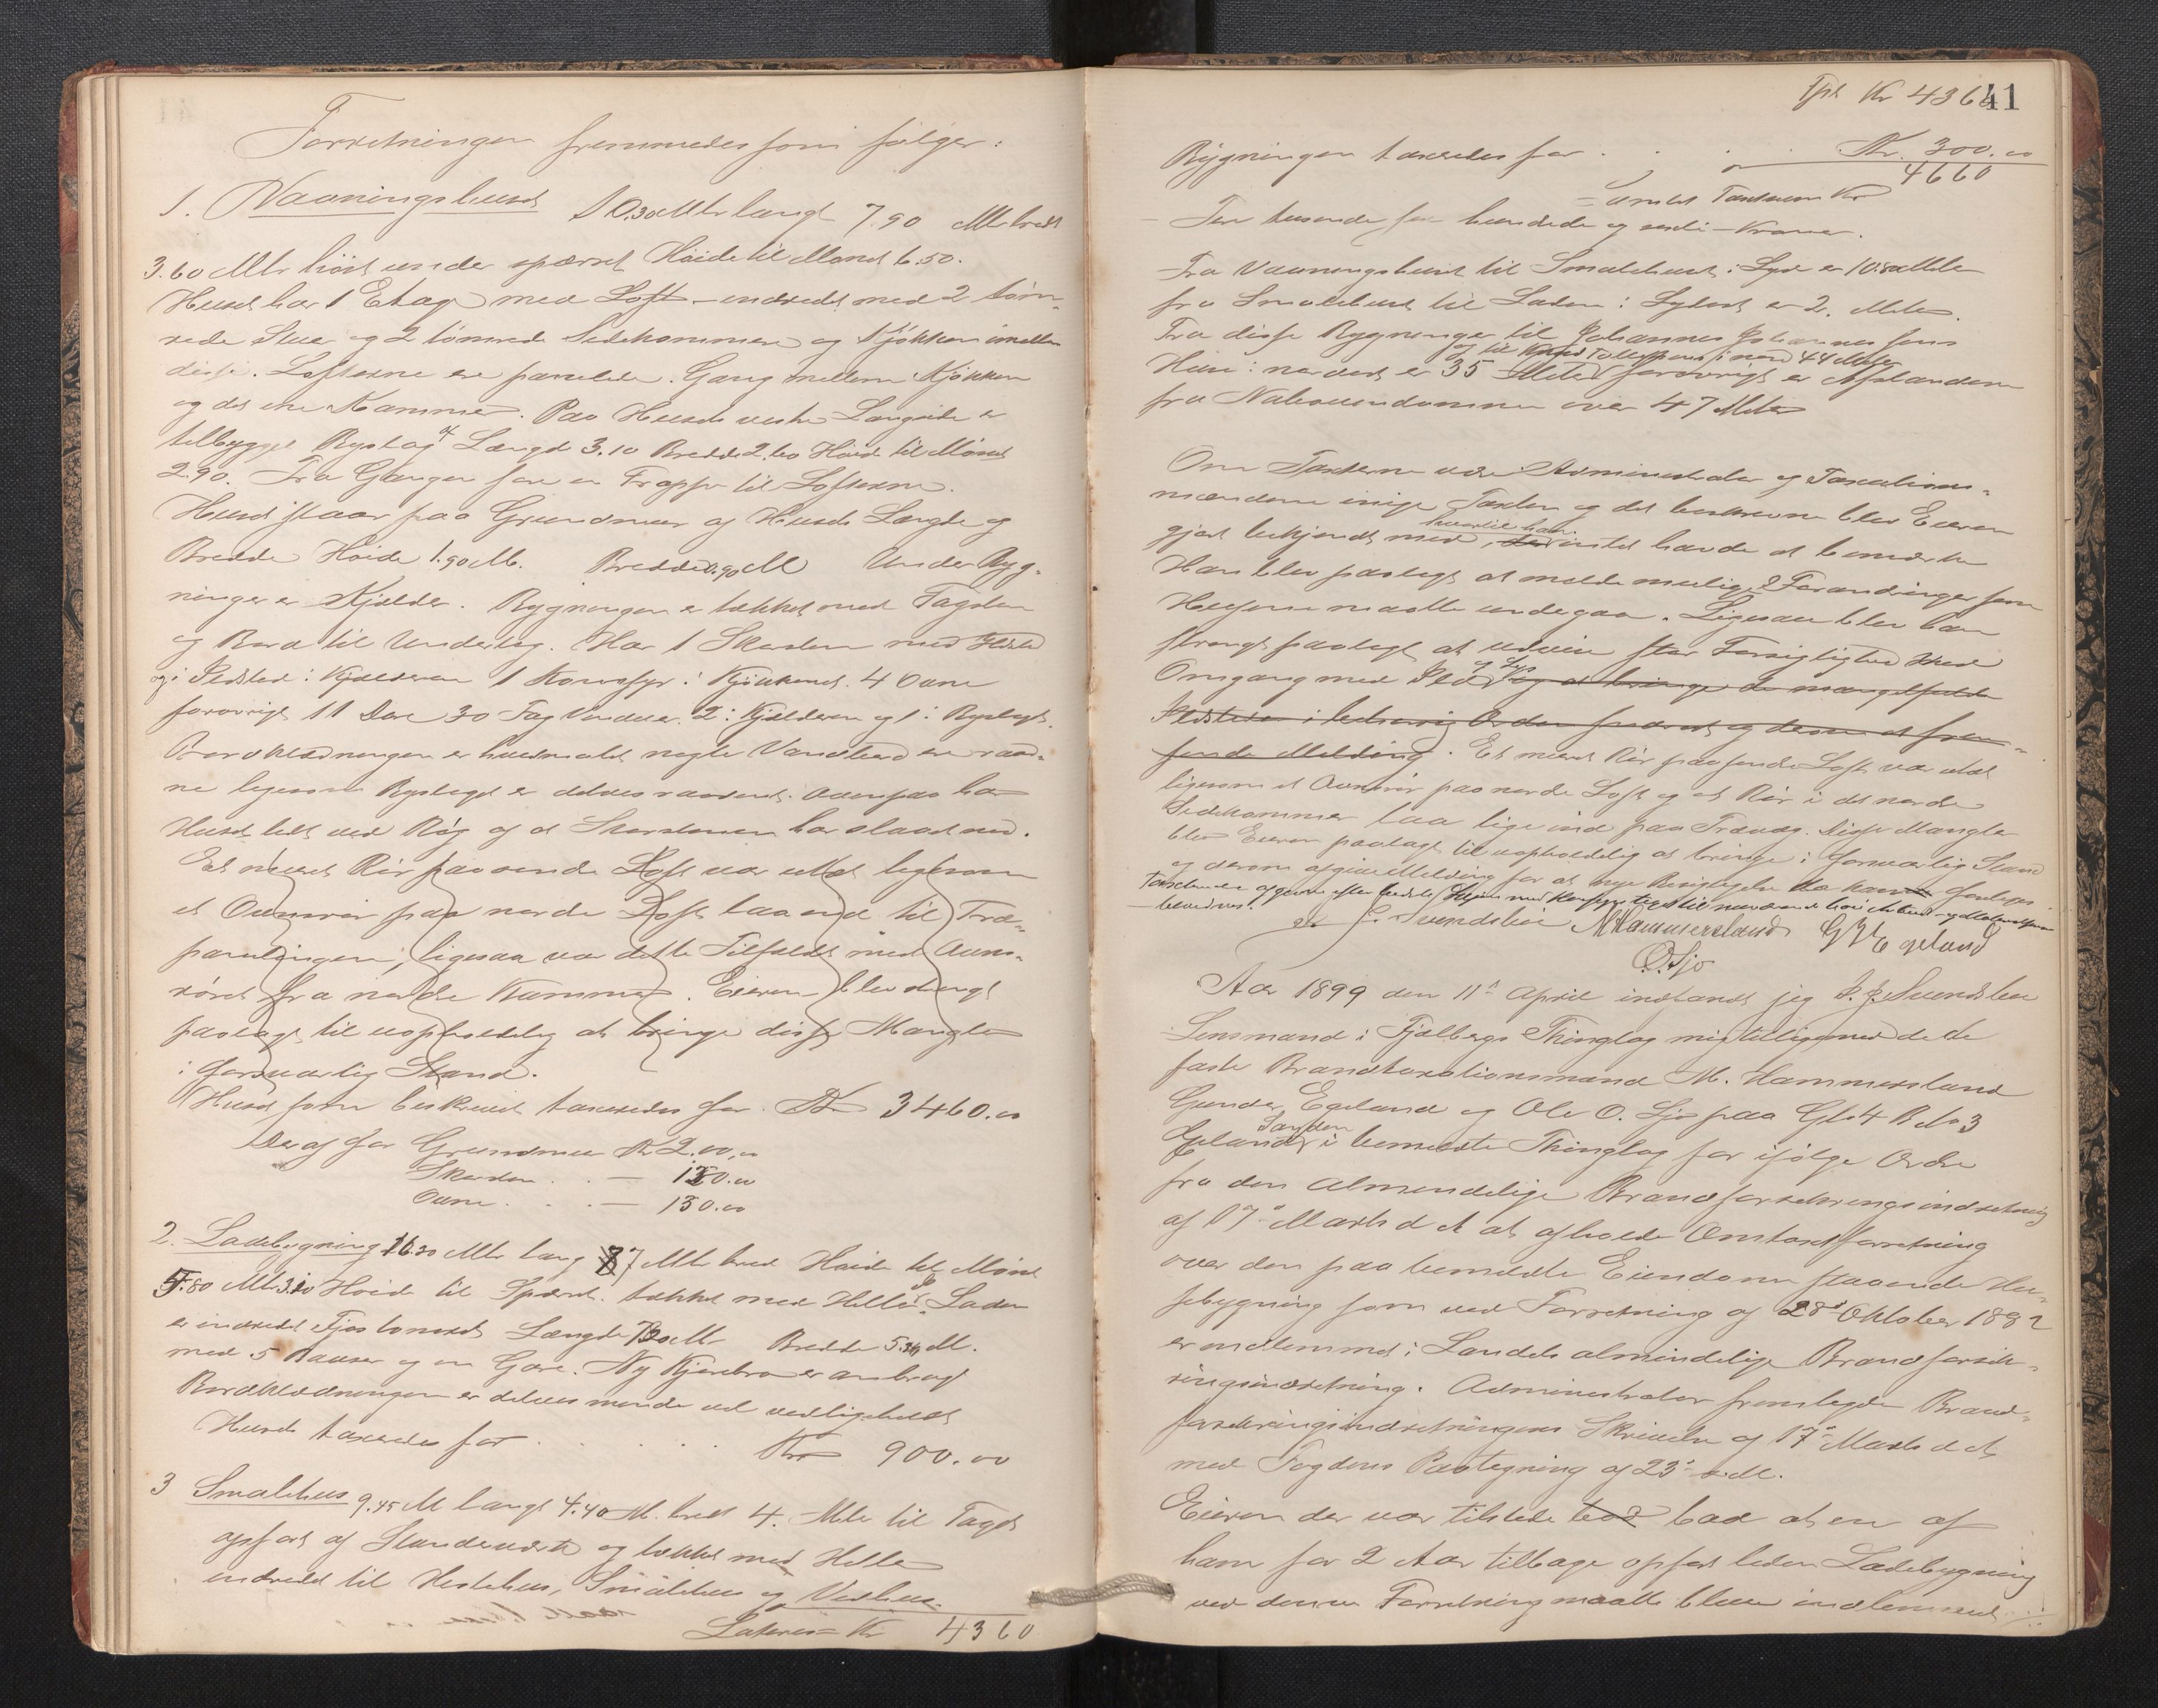 Forretningen fremmedes som følger:
1. Vaaningshuset 10.30 Mtr langt 7.90 Mtr bredt
3.60 Mtr höit under spærret Höide til Mønet 6.50.
Huset har 1 Etage med Loft – indredet med 2 tøm-
rede Stuer og 2 tømrede Sidekammere og Kjøkken imellem
disse. Lofterne ere panelede. Gang mellem Kjøkken
og det ene Kammer. Paa Husets vestre Langside er
tilbygget Byslag af Længd 3.10 Bredde 2.60 Høide til Mønet
2.90. Fra Gangen fører en Trappe til Lofterne.
Huset staar paa Grundmur af Husets Længde og
Bredde Høide 1.90 M. Bredde 0.90 M Under Byg-
ningen er Kjælder. Bygningen er tækket med Tagsten
og Bord til Underlag. Har 1 Skorsten med Ildsted
og i Ildsted i Kjælderen 1 Komfyr i Kjøkkenet. 4 Ovne
forøvrigt 11 Døre 30 Fag Vinduer 2 i Kjælderen og 1 i Byslaget.
Bordklædningen er hvidmalet nogle Vandbord ere raad-
ne ligesom Byslaget er delvis raaddent. Ovenpaa har
Huset lidt ved Røg af at Skorstenen har slaaet ned.
Et muret Rör paa søndre Loft var utæt ligesom
et Ovnsrør paa nordre Loft laa ind til Træ-
panelingen, ligesaa var dette Tilfældet med Ovns-
röret fra nordre Kammer. Eieren blev strengt
paalagt til uopholdelig at bringe disse Mangler
i forsvarlig Stand.
Huset som beskrevet taxeredes for Kr 3460.00
Deraf for Grundmur Kr 200.00
Skorsten . . — 150.00
Ovne . . . — 130.00
2. Ladebygning 16.30 Mtr lang 7 Mtr bred Høide til Mønet
5.80 Mtr 3.10 Høide til Spærret. tækket med Heller. Laden
er indredet Fjøs tømret Længde 7.30 M Bredde 5.30 M.
med 5 Baaser og en Gare. Ny Kjørebro er anbragt
Bordklædningen er delvis mindre vel vedligeholdt
Huset taxeredes for . . . . . Kr 900.00
3 Smalehus 9.45 M langt 4.40 M. bredt 4. Mtr til Taget
opført af Standerværk og tækket med Heller
indredet til Hestehus, Smalehus og Vedhus.
Lateris = Kr 4360
Tpt Kr 4360
41
Bygningen taxeredes for . . . . Kr. 300.00
4660
= Samlet Taxtsum Kr
Fire tusende sex hundrede og sexti – Kroner.
Fra Vaaningshuset til Smalehuset i Syd er 10.80 Meter
fra Smalehuset til Laden i Sydvest er 2. Meter.
Fra disse Bygninger til Johannes Johannessens
og til Knud Tollefsens i nord 44 Meter
Huse i nordvest er 35 Meter forøvrigt er Afstanden
fra Naboeiendommen over 47 Meter
Om Taxterne var Administrator og Taxations-
mændene enige Taxten og det beskrevne blev Eieren
hvortil han
gjort bekjendt med, der intet havde at bemærke
Han blev paalagt at melde mulige Forandringer som
Husene maatte undergaa. Ligesaa blev han
strengt paalagt at udvise stor Forsigtighed med
Omgang med Ild og Lys og at bringe de mangelfulde
Ildsteder i lovlig Orden snarest og derom at frem-
sende Melding. Et muret Rör paa søndre Loft var utæt
ligesom et Ovnsrør paa nordre Loft og et Rör i det nordre
Sidekammer laa lige ind paa Trævæg. Disse Mangler
blev Eieren paalagt til uopholdelig at bringe i forsvarlig Stand
og derom afgive Melding for at nye Besigtigelse da kan foretages.
J. Svendsbøe M Hammersland G J Egeland
O. Sjo
Aar 1899 den 11te April indfandt jeg J. J. Svendsbøe
Lensmand i Fjelbergs Thinglag mig tilligemed de
faste Brandtaxationsmænd M. Hammersland
Gunder Egeland og Ole O. Sjo paa Gbr 4 Bd 3
Sanden
Egeland i bemeldte Thinglag for ifølge Ordre
fra den almindelige Brandforsikringsindretning
af 17de Marts d A at afholde Omtaxtforretning
over den paa bemeldte Eiendom staaende Hu-
sebygning som ved Forretning af 28de Oktober 1882
er indlemmet i Landets almindelige Brandforsik-
ringsindretning. Administrator fremlagde Brand-
forsikringsindretningens Skrivelse af 17de Marts d A
med Fogdens Paategning af 23de s. M.
Eieren der var tilstede bad at en af
ham for 2 Aar tilbage opført liden Ladebygning
ved denne Forretning maatte blive indlemmet